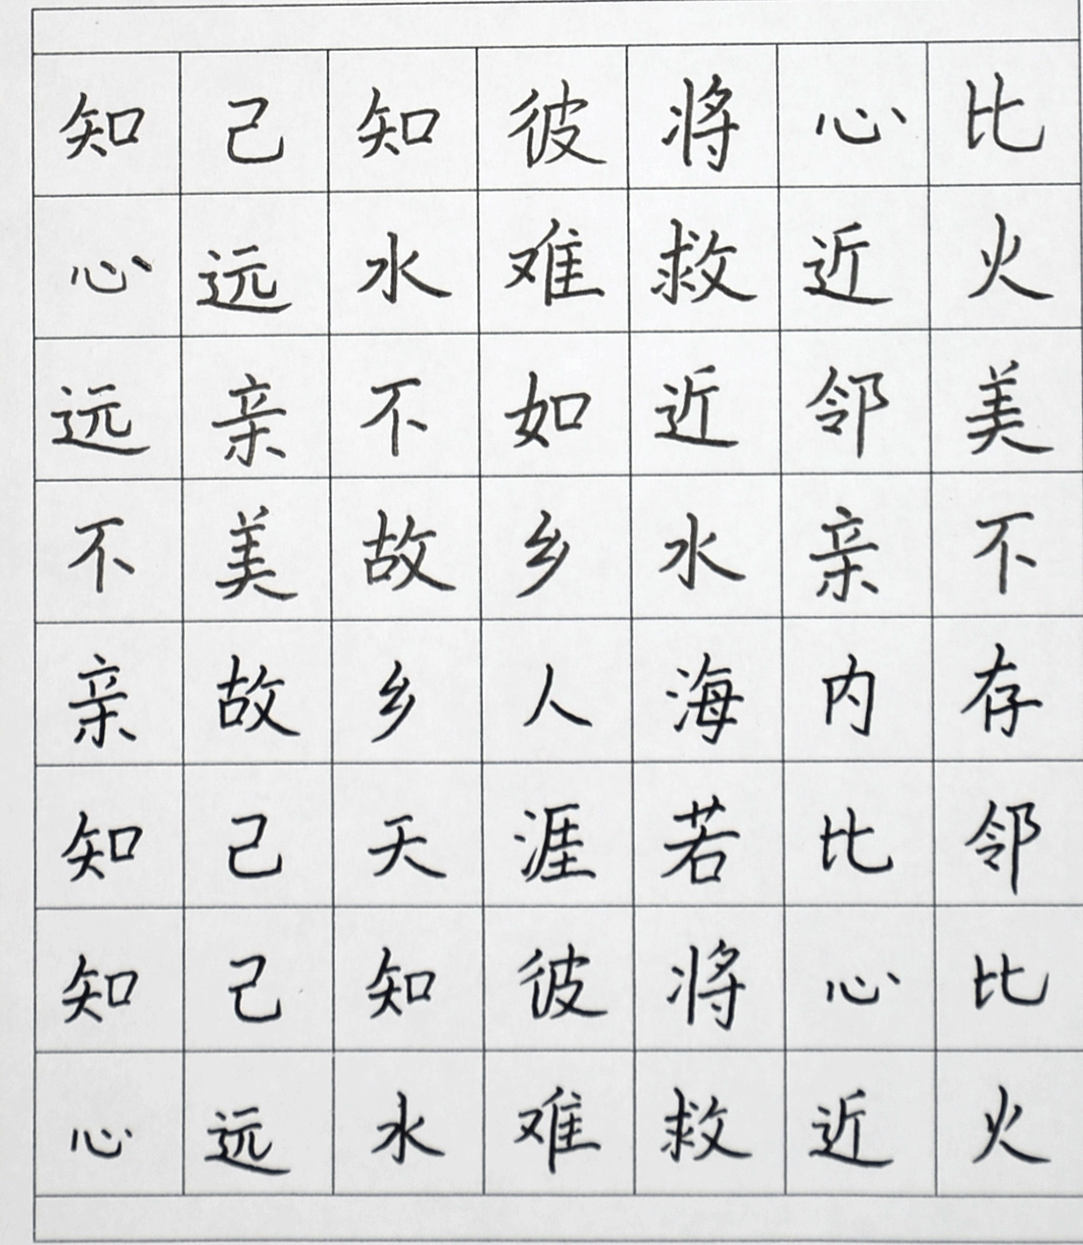 知己知彼将心比
心远水难救近火
远亲不如近邻美
不美故乡水亲不
亲故乡人海内存
知己天涯若比邻
知己知彼将心比
心远水难救近火